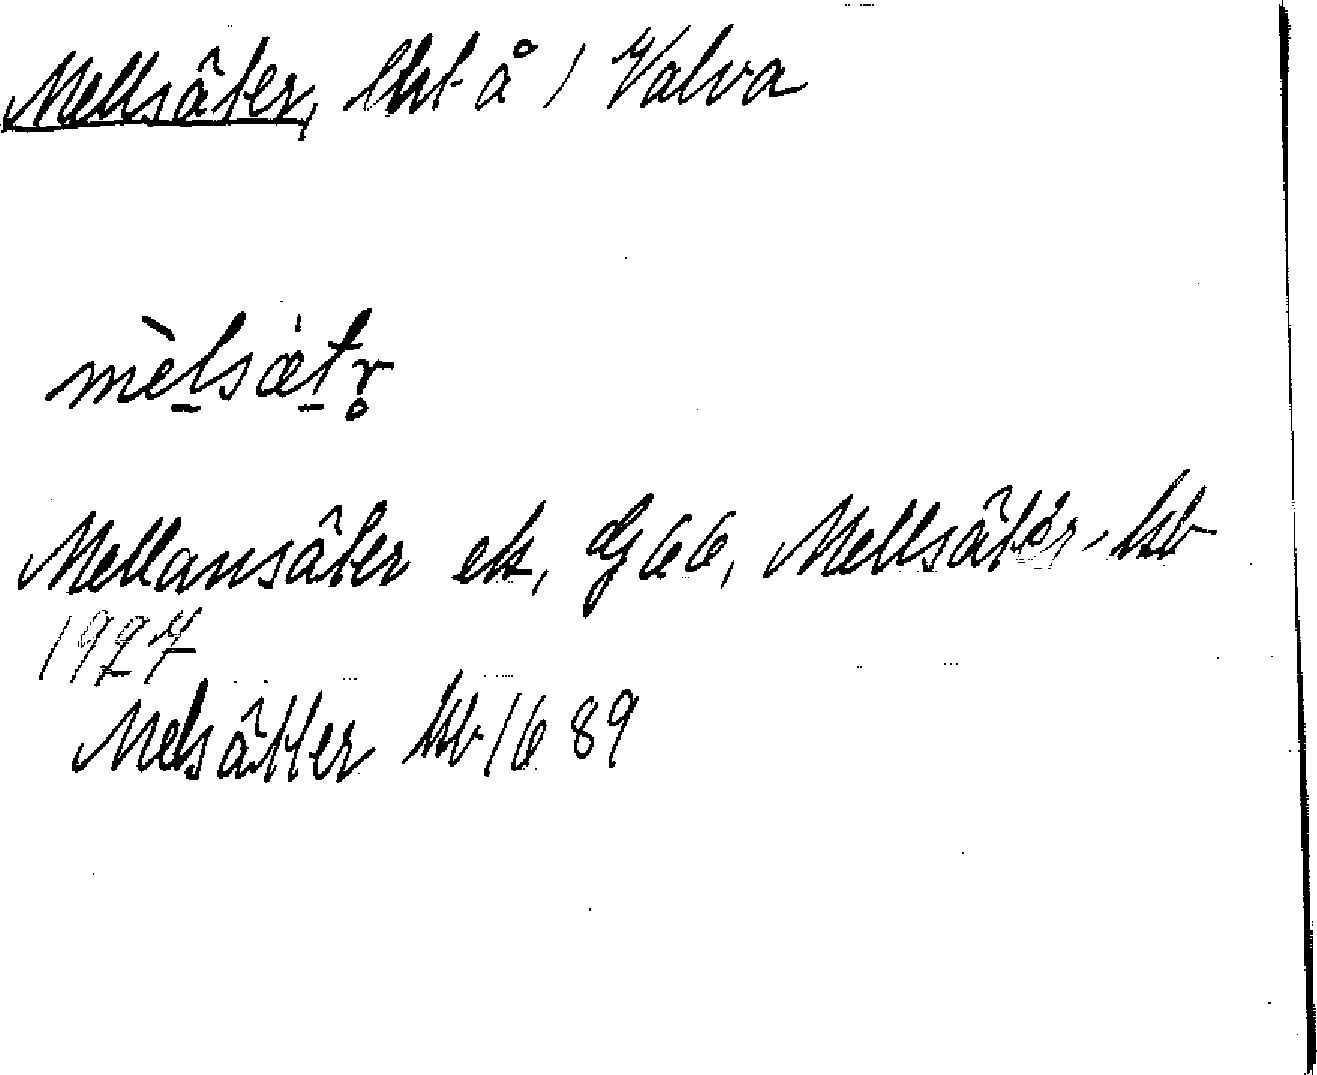 Mellsäter, lht å 1 Valva
mèlsætr̥
Mellansäter ek, G66, Mellsäter - kb
1927
Melsätter kb 1689